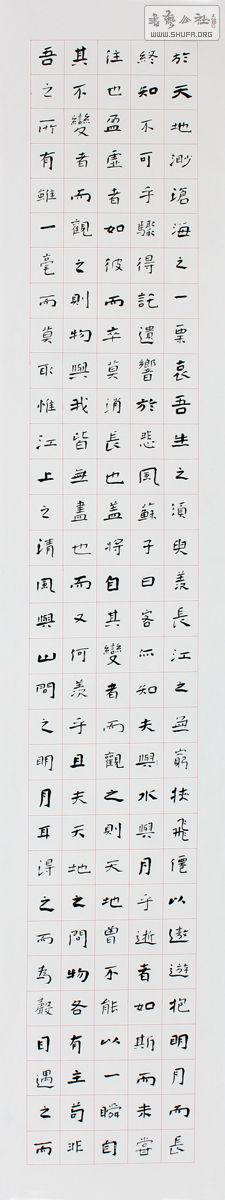 書藝公社
WWW.SHUFA.ORG
於天地渺滄海之一粟哀吾生之須臾羨長江之無窮挾飛僊以遨遊抱明月而長
終知不可乎驟得託遺響於悲風蘇子曰客亦知夫與水與月乎逝者如斯而未嘗
往也盈虛者如彼而卒莫消長也蓋將自其變者而觀之則天地曾不能以一瞬自
其不變者而觀之則物與我皆無盡也而又何羨乎且夫天地之間物各有主苟非
吾之所有雖一毫而莫取惟江上之清風與山間之明月耳得之而為聲目遇之而